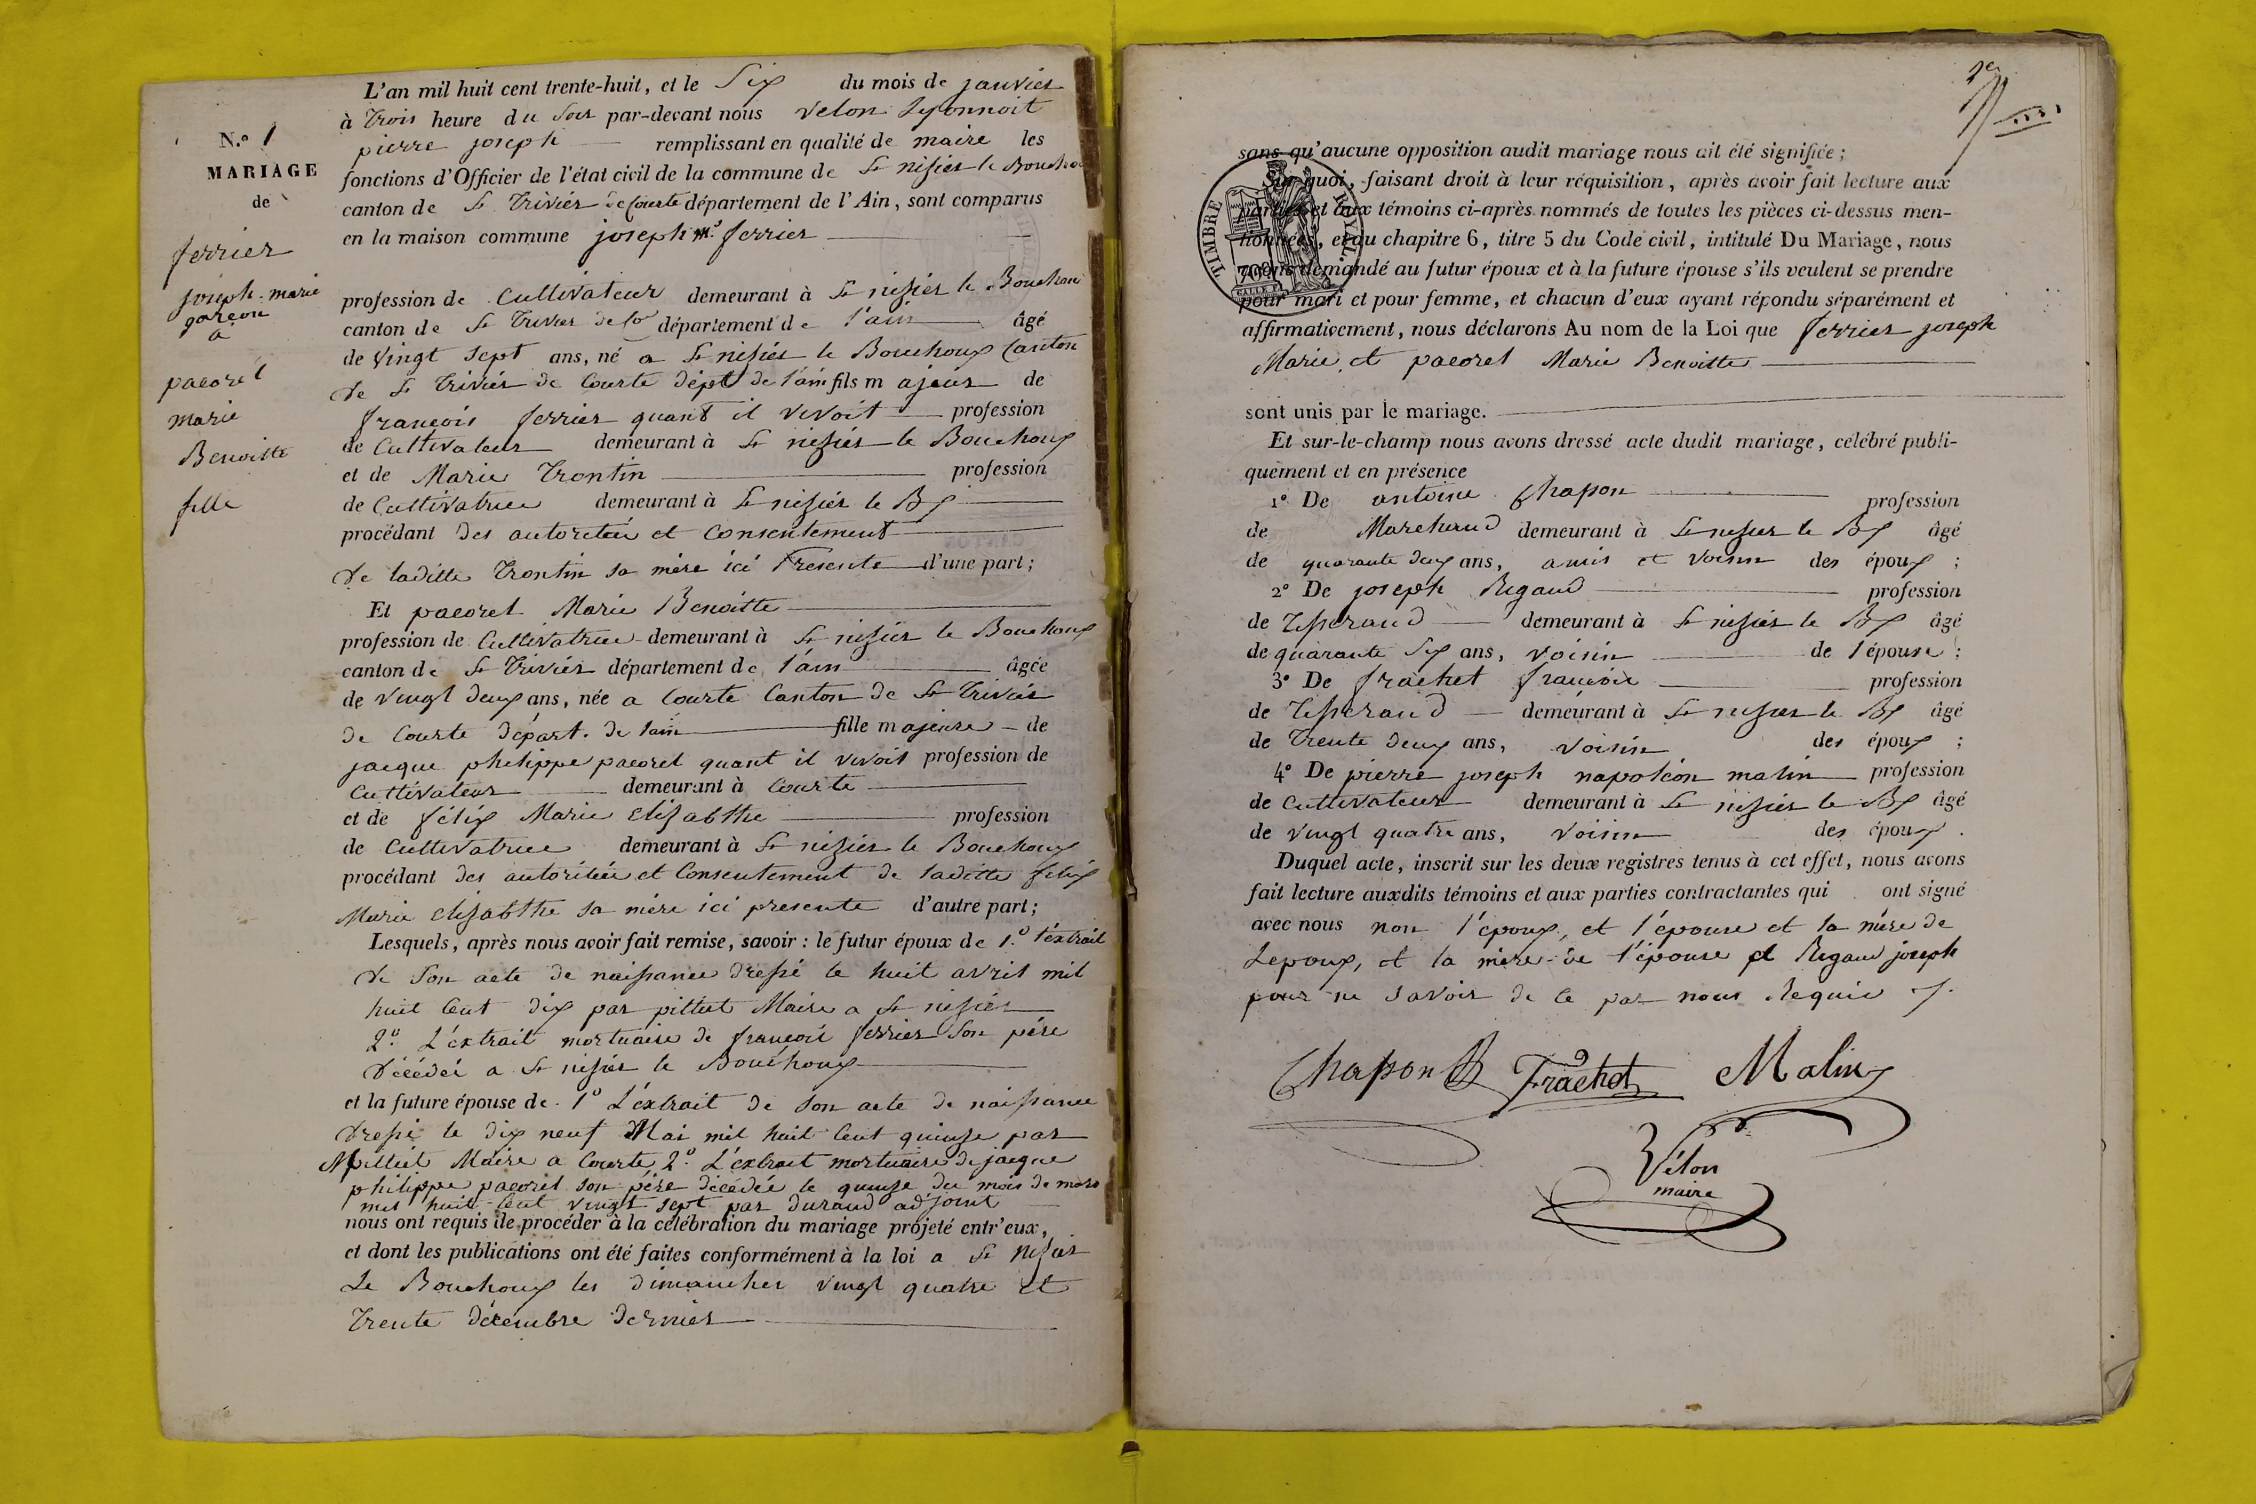 N.o 1
MARIAGE
de
ferrier
joseph-marie
garçon
a
pacoret
marie
Benoitte
fille
L'an mil huit cent trente-huit, et le Six du mois de janvier
à trois heure du Soir par-devant nous velon Lyonnoit
pierre joseph remplissant en qualité de maire les
fonctions d'Officier de l'état civil de la commune de St nisiér le Bouchou
canton de St Triviér de Courte département de l'Ain, sont comparus
en la maison commune joseph m.ie ferrier
profession de Cultivateur demeurant à St nisiér le Bouchou
canton de St Trivier de Co département de l'ain âgé
de vingt sept ans, né a St nisiér le Bouchoux Canton
de St triviér de Courte dépt de l'ain fils majeur de
françois ferrier quant il vivoit profession
de Cultivateur demeurant à St niziér le Bouchoux
et de Marie Trontin profession
de Cultivatrice demeurant à St niziér le Bx
procédant des autoritée et Consentement
de laditte Trontin sa mére ici Presente d'une part;
Et pacoret Marie Benoitte
profession de Cultivatrice demeurant à St niziér le Bouchoux
canton de St Triviér département de l'ain âgée
de vingt deux ans, née a Courte Canton de St Triviér
de Courte départ. de l'ain fille majeure de
jacque philippe pacoret quant il vivoit profession de
Cultivateur demeurant à Courte
et de félix Marie elisabthe profession
de Cultivatrice demeurant à St niziér le Bouchoux
procédant des autoritée et Consentement de laditte félix
Marie elisabthe sa mére ici presente d'autre part;
Lesquels, après nous avoir fait remise, savoir: le futur époux de 1.o l'éxtrait
de Son acte de naissance dressé le huit avril mil
huit Cent dix par pilliet Maire a St niziér
2.o L'éxtrait mortuaire de françois ferrier Son pére
décédéi a St niziér le Bouchoux
et la future épouse de 1o L'éxtrait de Son acte de naissance
dressé le dix neuf Mai mil huit Cent quinze par
Milliet Maire a Courte 2.o L'éxtrait mortuaire de jacque
philippe pacoret son pére décédée le quinze du mois de mars
mil huit Cent vingt sept par durand adjoint
nous ont requis de procéder à la célébration du mariage projeté entr'eux,
et dont les publications ont été faites conformément à la loi a St niziér
Le Bouchoux les dimanches vingt quatre et
trente décembre dernier
sans qu'aucune opposition audit mariage nous ait été signifiée;
Sur quoi, faisant droit à leur réquisition, après avoir fait lecture aux
parties et aux témoins ci-après nommés de toutes les pièces ci-dessus men-
tionnées, et du chapitre 6, titre 5 du Code civil, intitulé Du Mariage, nous
avons demandé au futur époux et à la future épouse s'ils veulent se prendre
pour mari et pour femme, et chacun d'eux ayant répondu séparément et
affirmativement, nous déclarons Au nom de la Loi que ferrier joseph
Marie et pacoret Marie Benoitte
sont unis par le mariage.
Et sur-le-champ nous avons dressé acte dudit mariage, célébré publi-
quement et en présence
1o De antoine Chapon profession
de Marchand demeurant à St nizier le Bx âgé
de quarante deux ans, amis et voisin des époux;
2o De joseph Rigaud profession
de Tisserand demeurant à St niziér le Bx âgé
de quarante Six ans, voisin de l'épouse;
3o De frachet françoix profession
de Tisserand demeurant à St nizier le Bx âgé
de trente deux ans, voisin des époux;
4o De pierre joseph napoléon malin profession
de Cultivateur demeurant à St niziér le Bx âgé
de vingt quatre ans, voisin des époux.
Duquel acte, inscrit sur les deux registres tenus à cet effet, nous avons
fait lecture auxdits témoins et aux parties contractantes qui ont signé
avec nous non l'époux, et l'épouse et la mére de
Lepoux, et la mére de l'épouse et Rigaud joseph
pour ne Savoir de ce par nous Requis
TIMBRE ROYAL
70
Chapon Frachet Malin
Vélon
maire